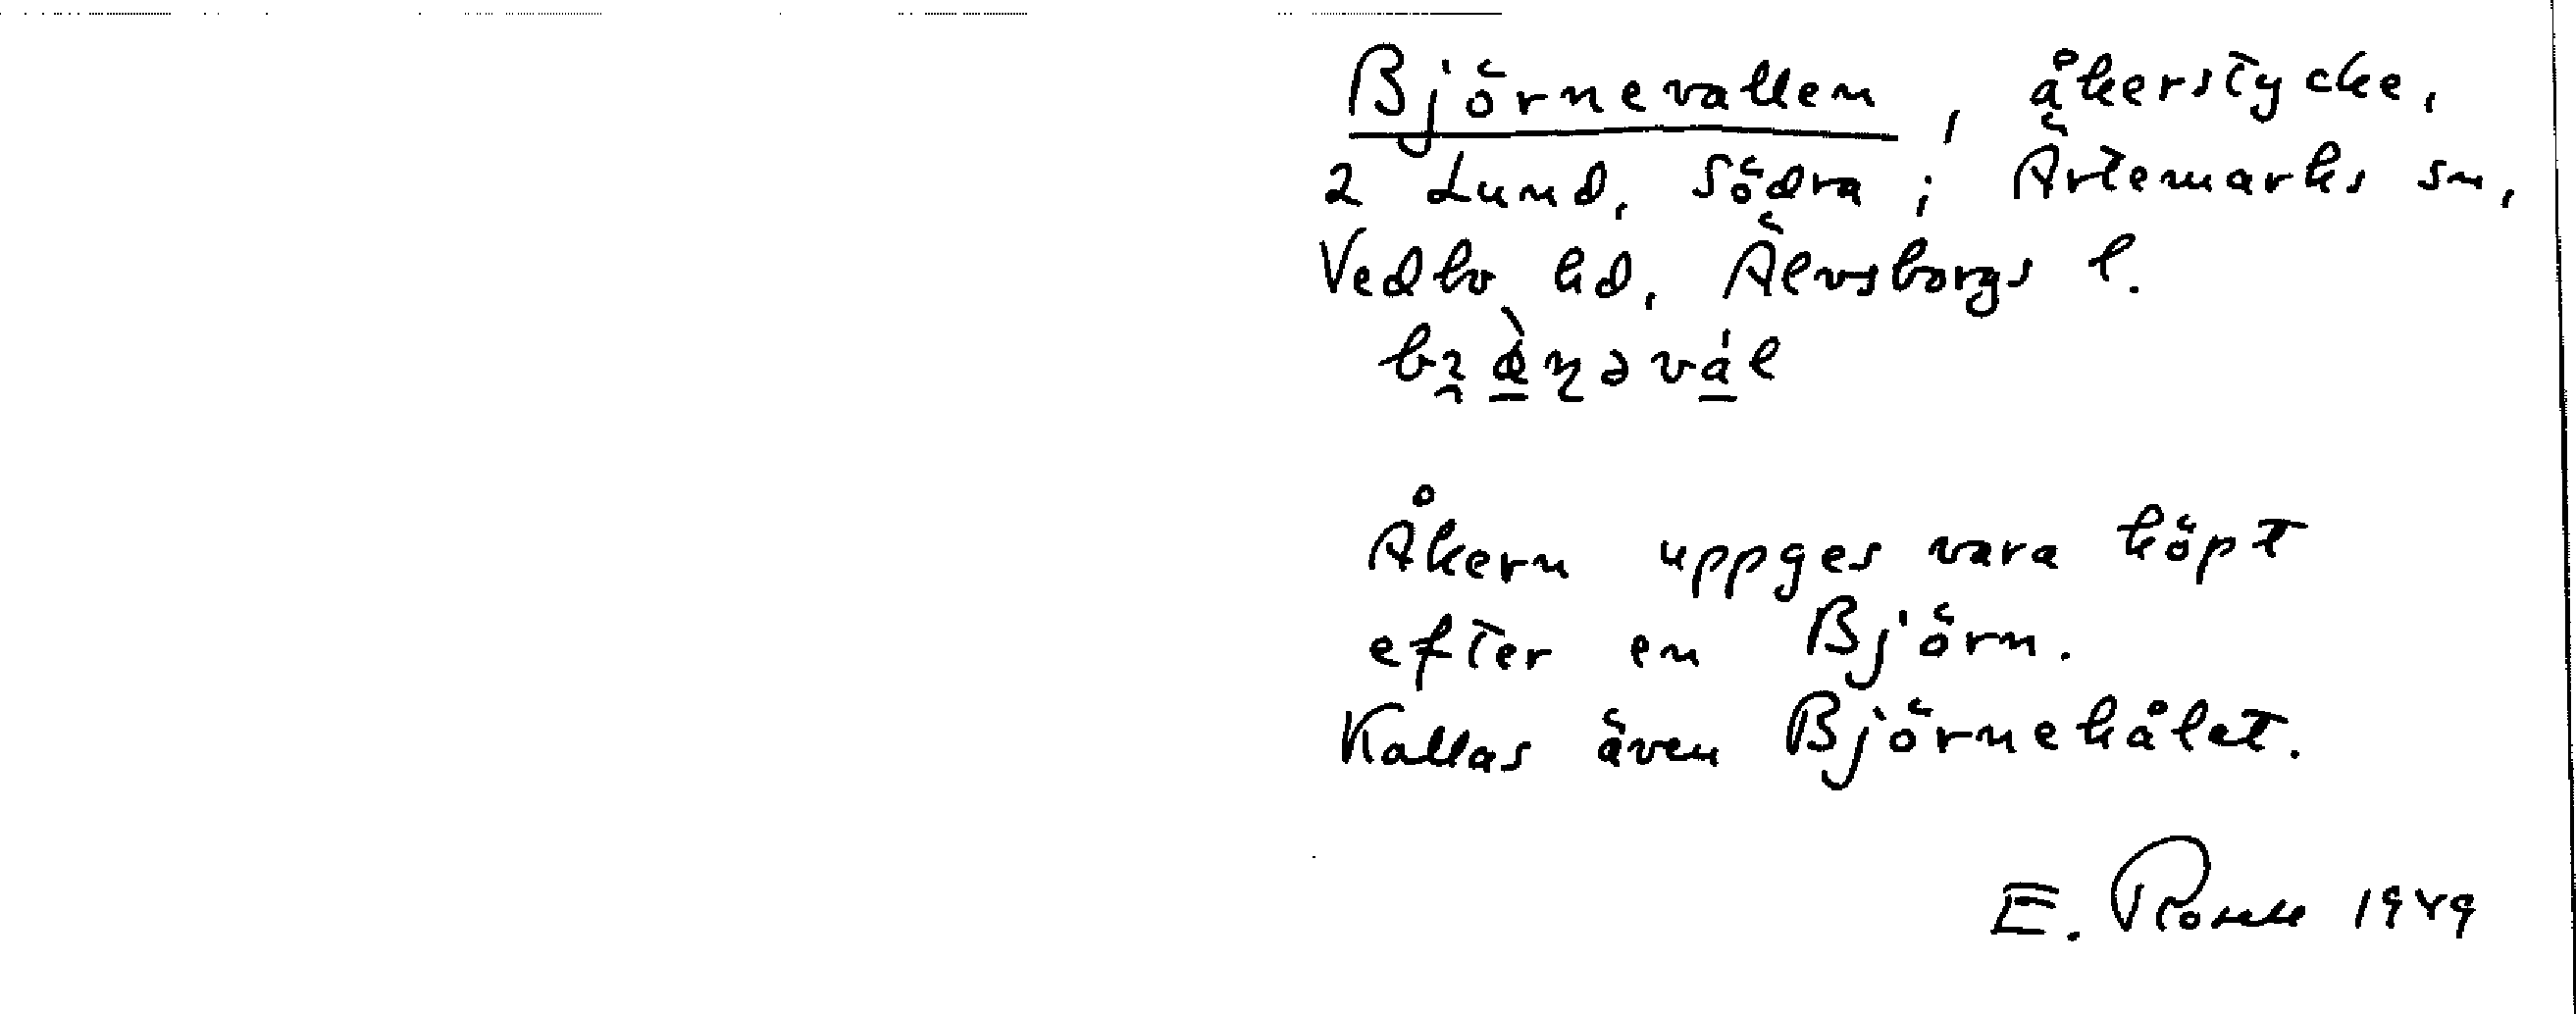 Björnevallen, åkerstycke,
2 Lund, Södra; Ärtemarks sn,
Vedbo hd, Älvsborgs l.
Åkern uppges vara köpt
efter en Björn.
Kallas även Björnehålet.
E. Rosell 1949